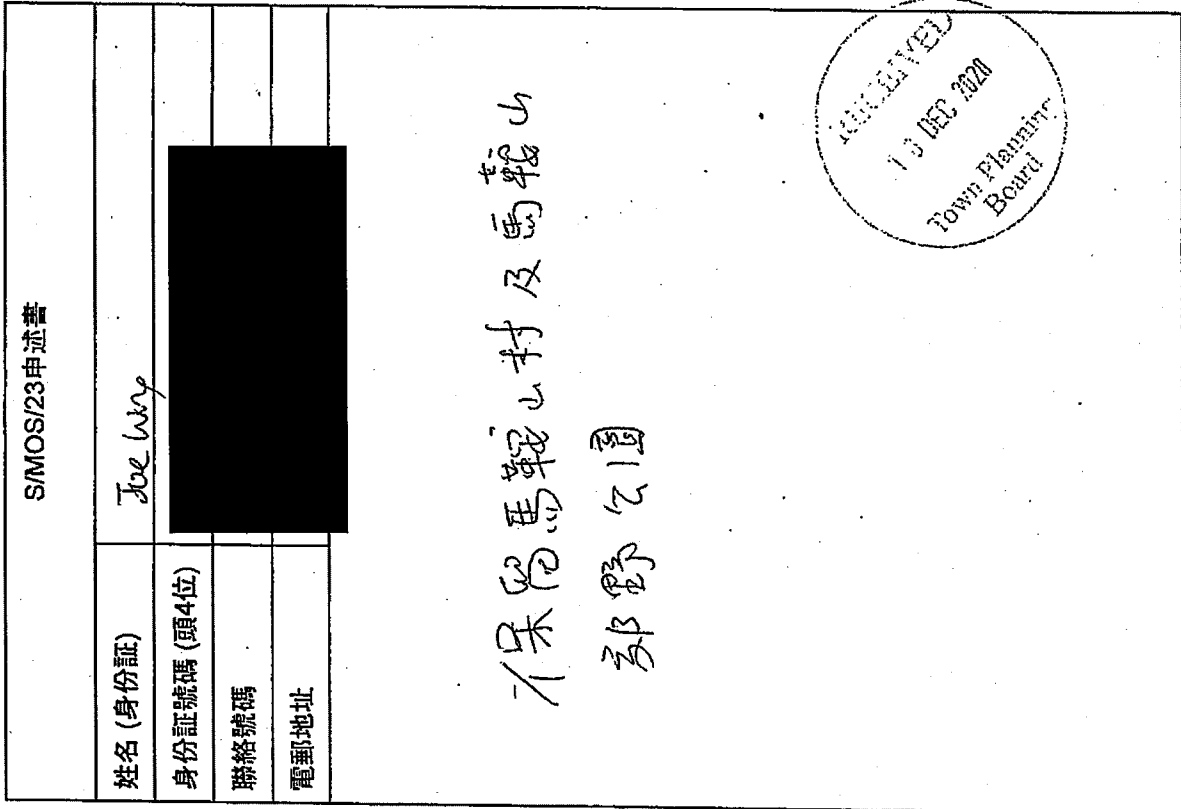 S/MOS/23申述書
姓名 (身份証)
Joe
身份証號碼 (頭4位)
聯絡號碼
電郵地址
保留馬鞍山村及馬鞍山
郊野公園
RECEIVED
DEC 2020
Town Planning
Board